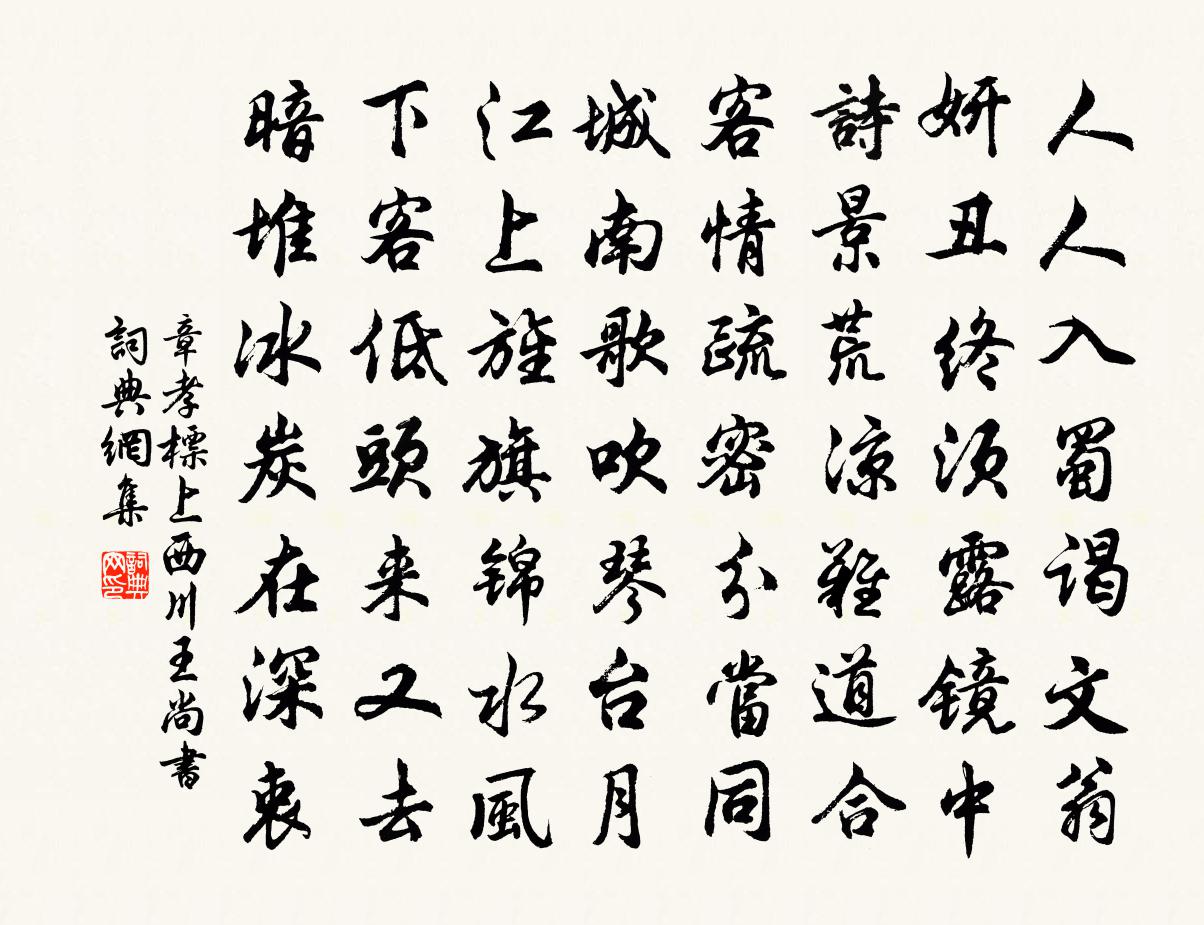 人人入蜀谒文翁
妍丑终须露镜中
詩景荒涼難道合
客情疏密分當同
城南歌吹琴台月
江上旌旗锦水風
下客低頭来又去
暗堆冰炭在深衷
章孝標上西川王尚書
詞典網集
詞典网印